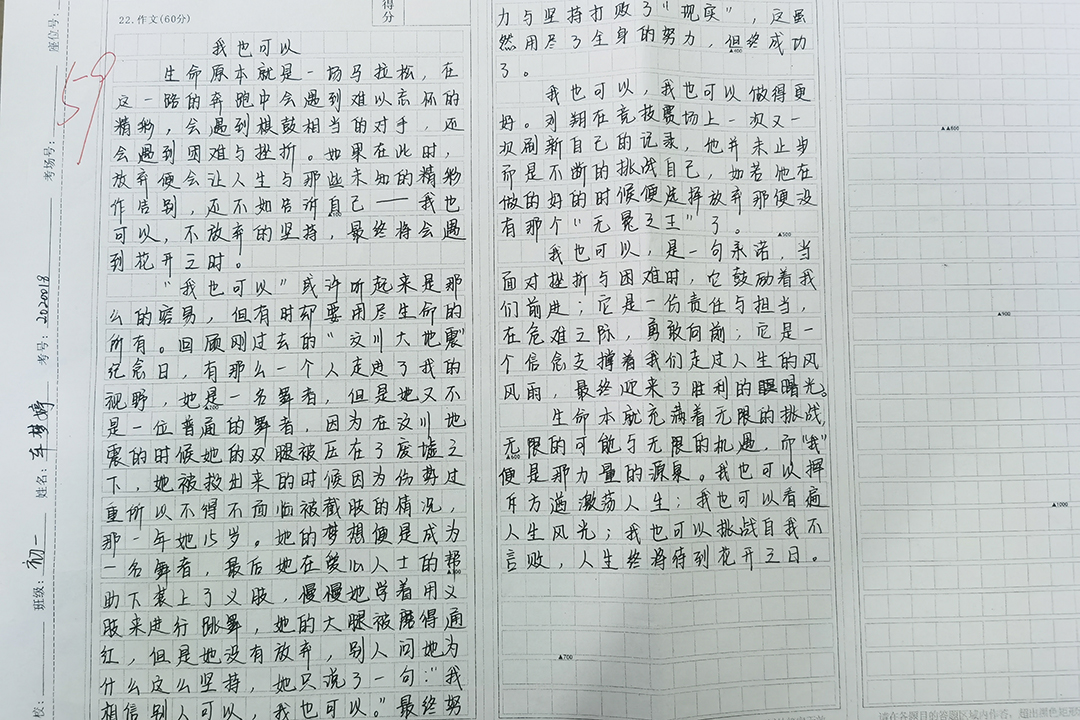 22.作文(60分)
得
分
59
我也可以
生命原本就是一场马拉松，在
这一路的奔跑中会遇到难以忘怀的
精彩，会遇到棋鼓相当的对手，还
会遇到困难与挫折。如果在此时，
放弃便会让人生与那些未知的精彩
作告别，还不如告诉自己——我也
可以，不放弃的坚持，最终将会遇
到花开之时。
“我也可以”或许听起来是那
么的容易，但有时却要用尽生命的
所有。回顾刚过去的“汶川大地震”
纪念日，有那么一个人走进了我的
视野，她是一名舞者，但是她又不
是一位普通的舞者，因为在汶川地
震的时候她的双腿被压在了废墟之
下，她被救出来的时候因为伤势过
重所以不得不面临被截肢的情况，
那一年她15岁。她的梦想便是成为
一名舞者，最后她在爱心人士的帮
助下装上了义肢，慢慢她学着用义
肢来进行跳舞，她的大腿被磨得通
红，但是她没有放弃，别人问她为
什么这么坚持，她只说了一句：“我
相信别人可以，我也可以。”最终努
力与坚持打败了“现实”，这虽
然用尽了全身的努力，但终成功
了。
我也可以，我也可以做得更
好。刘翔在竞技赛场上一次又一
次刷新自己的记录，他并未止步
而是不断的挑战自己，如若他在
做的好的时候便选择放弃那便没
有那个“无冕之王”了。
我也可以，是一句承诺，当
面对挫折与困难时，它鼓励着我
们前进；它是一份责任与担当，
在危难之际，勇敢向前；它是一
个信念支撑着我们走过人生的风
风雨，最终迎来了胜利的曙光。
生命本就充满着无限的挑战，
无限的可能与无限的机遇，而“我”
便是那力量的源泉。我也可以挥
斥方遒激荡人生；我也可以看遍
人生风光；我也可以挑战自我不
言败，人生终将待到花开之日。
▲100
▲200
▲300
▲400
▲500
▲600
▲700
▲▲800
▲900
▲1000
座位号：
考场号：
考号：2020018
姓名：车梦婷
班级：初一
校：
请在各题目的答题区域内作答，超出黑色矩形